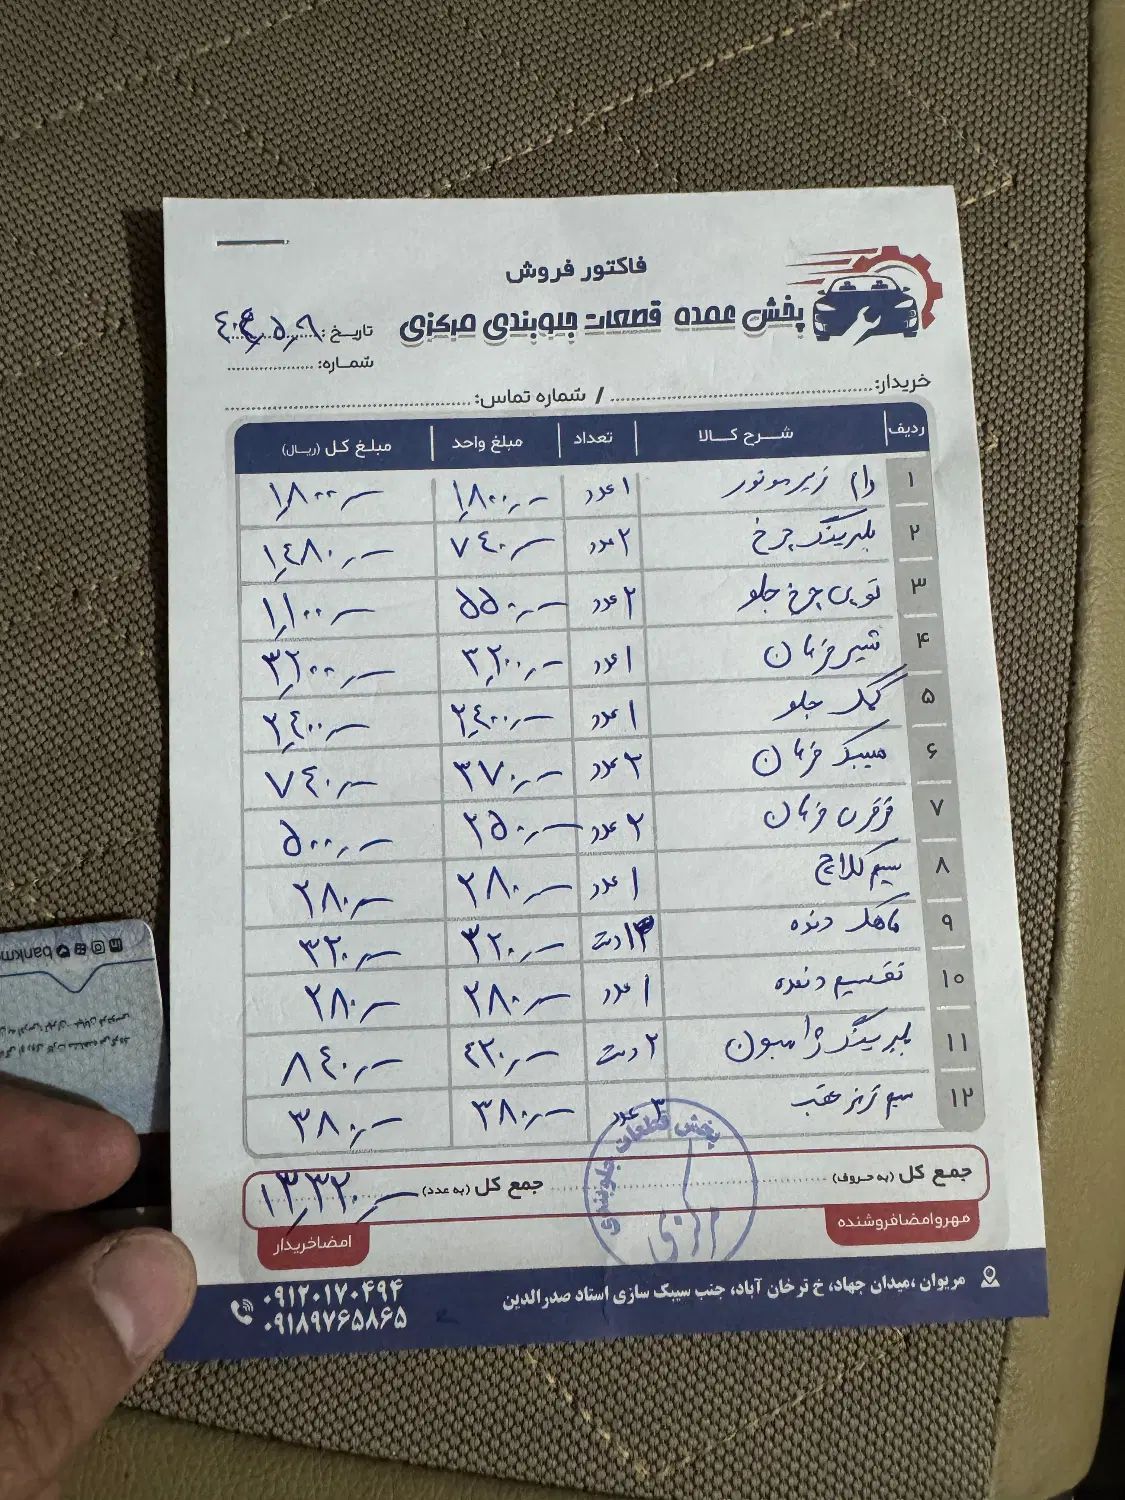 فاکتور فروش
پخش عمده قطعات جلوبندی مرکزی
تاریخ:
شماره:
خریدار: / شماره تماس:
ردیف شرح کالا تعداد مبلغ واحد مبلغ کل (ریال)
۱ رام زیر موتور ۱ عدد ۱,۸۰۰,۰۰۰ ۱,۸۰۰,۰۰۰
۲ بلبرینگ چرخ ۲ عدد ۷۴۰,۰۰۰ ۱,۴۸۰,۰۰۰
۳ توپی چرخ جلو ۲ عدد ۵۵۰,۰۰۰ ۱,۱۰۰,۰۰۰
۴ شیر فرمان ۱ عدد ۳,۲۰۰,۰۰۰ ۳,۲۰۰,۰۰۰
۵ کمک جلو ۱ عدد ۲,۴۰۰,۰۰۰ ۲,۴۰۰,۰۰۰
۶ سیبک فرمان ۲ عدد ۳۷۰,۰۰۰ ۷۴۰,۰۰۰
۷ قرقری فرمان ۲ عدد ۲۵۰,۰۰۰ ۵۰۰,۰۰۰
۸ سیم کلاچ ۱ عدد ۲۸۰,۰۰۰ ۲۸۰,۰۰۰
۹ ماهک دنده ۱ دست ۳۲۰,۰۰۰ ۳۲۰,۰۰۰
۱۰ تقسیم دنده ۱ عدد ۲۸۰,۰۰۰ ۲۸۰,۰۰۰
۱۱ بلبرینگ ژامبون ۲ دست ۴۲۰,۰۰۰ ۸۴۰,۰۰۰
۱۲ سیم ترمز عقب عدد ۳۸۰,۰۰۰ ۳۸۰,۰۰۰
جمع کل (به حروف) جمع کل (به عدد) ۱۳,۳۲۰,۰۰۰
پخش قطعات جلوبندی
مرکزی
مهر و امضا فروشنده
امضا خریدار
مریوان ،میدان جهاد، خ ترخان آباد، جنب سیبک سازی استاد صدرالدین
۰۹۱۲۰۱۷۰۴۹۴
۰۹۱۸۹۷۶۵۸۶۵